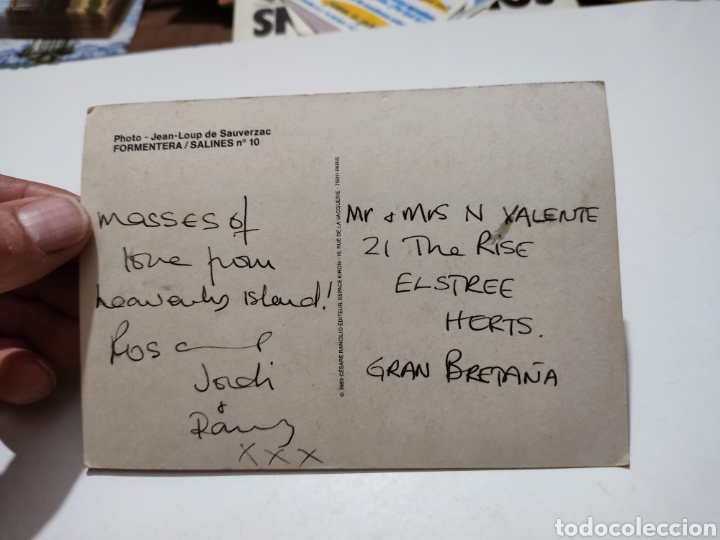 Photo - Jean-Loup de Sauverzac
FORMENTERA / SALINES nº 10
masses of
love from
heavenly island!
Ros
Jordi
&
XXX
© 1983 CÉSARE RANCILIO ÉDITEUR, ESPACE KIRON - 10, RUE DE LA VACQUERIE - 75011 PARIS
Mr & Mrs N VALENTE
21 The RISE
ELSTREE
HERTS.
GRAN BRETAÑA
todocoleccion